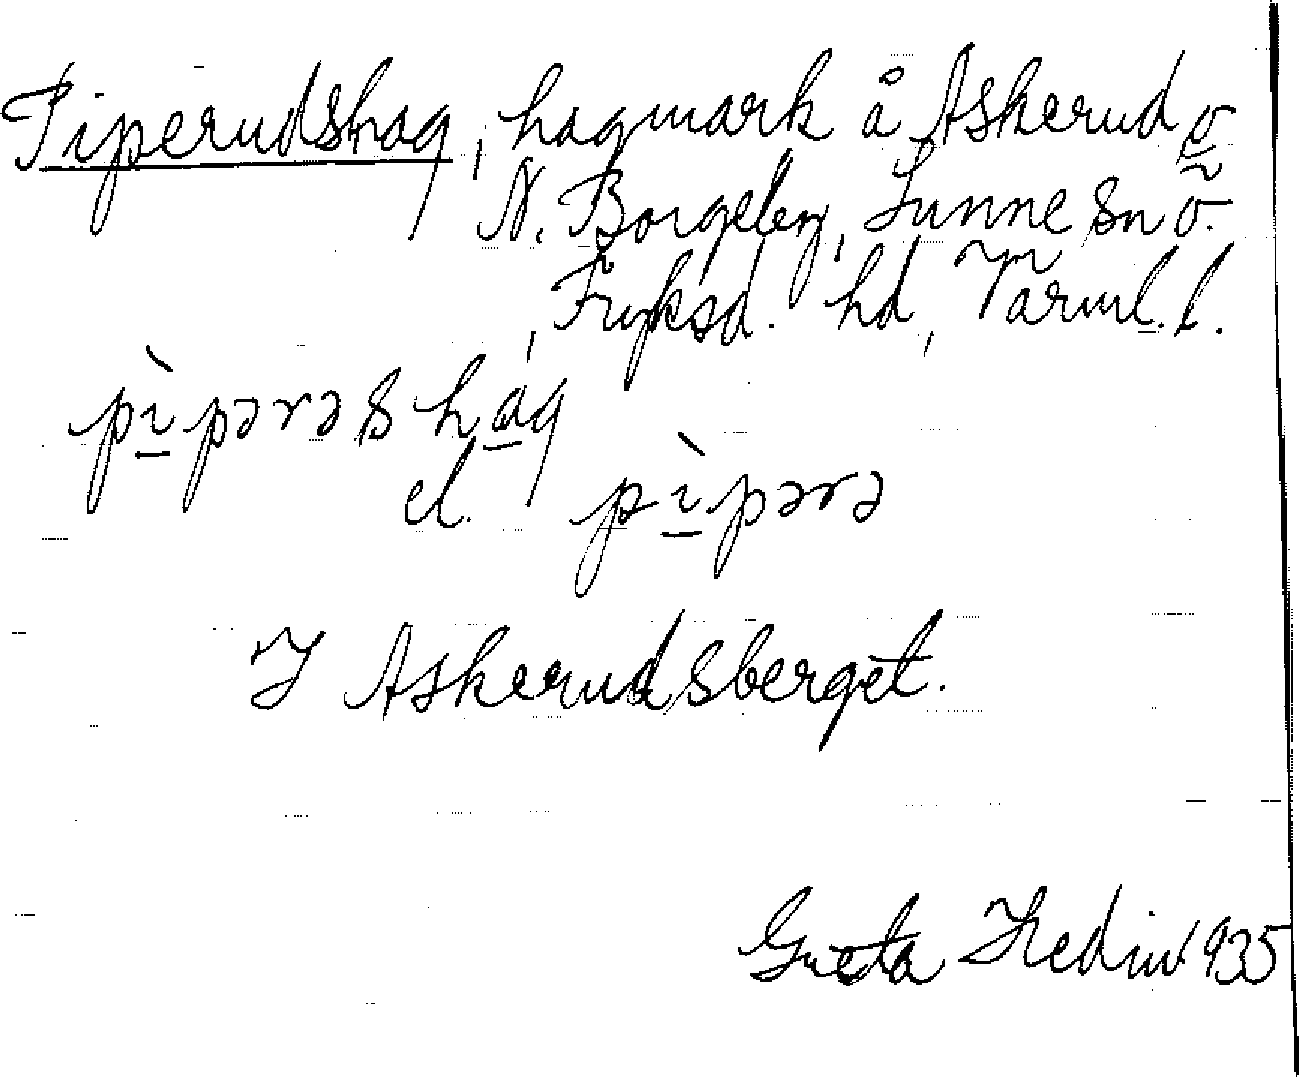 Piperudshag, hagmark å Askerud o.
N. Borgeby, Sunne sn o.
Fryksd. hd, Värml. l.
pı̀pərəs hág
el. pı̀pərə
I Askerudsberget.
Greta Hedin 1935